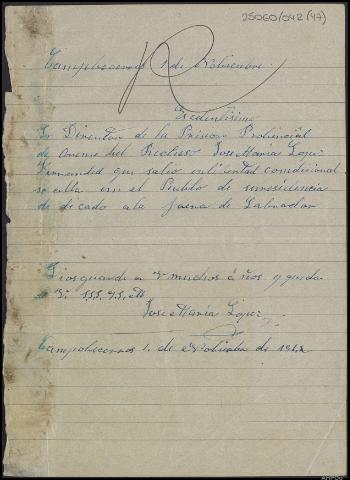 25060/042(47)
Campobecerros 1 de Nobienbre.
Excelentisimo
Sr Director de la Prision Probincial
de Orense del Recluso Jose María Lopez
Fernandez que salio en libertad condicional
se alla en el Pueblo de su residencia
de dicado ala faena de Labrador
Dios guarde a V muchos años y queda
Jose María Lopez
Campobecerros 1. de Nobienbre de